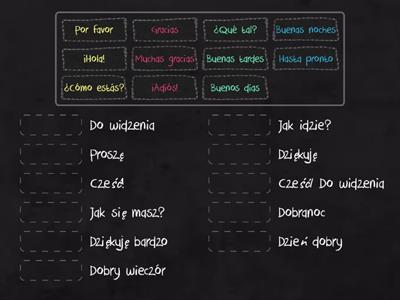 Por favor
Gracias
¿Qué tal?
Buenas noches
¡Hola!
Muchas gracias
Buenas tardes
Hasta pronto
¿Cómo estás?
¡Adiós!
Buenos días
Do widzenia
Proszę
Cześć!
Jak się masz?
Dziękuję bardzo
Dobry wieczór
Jak idzie?
Dziękuję
Cześć! Do widzenia
Dobranoc
Dzień dobry